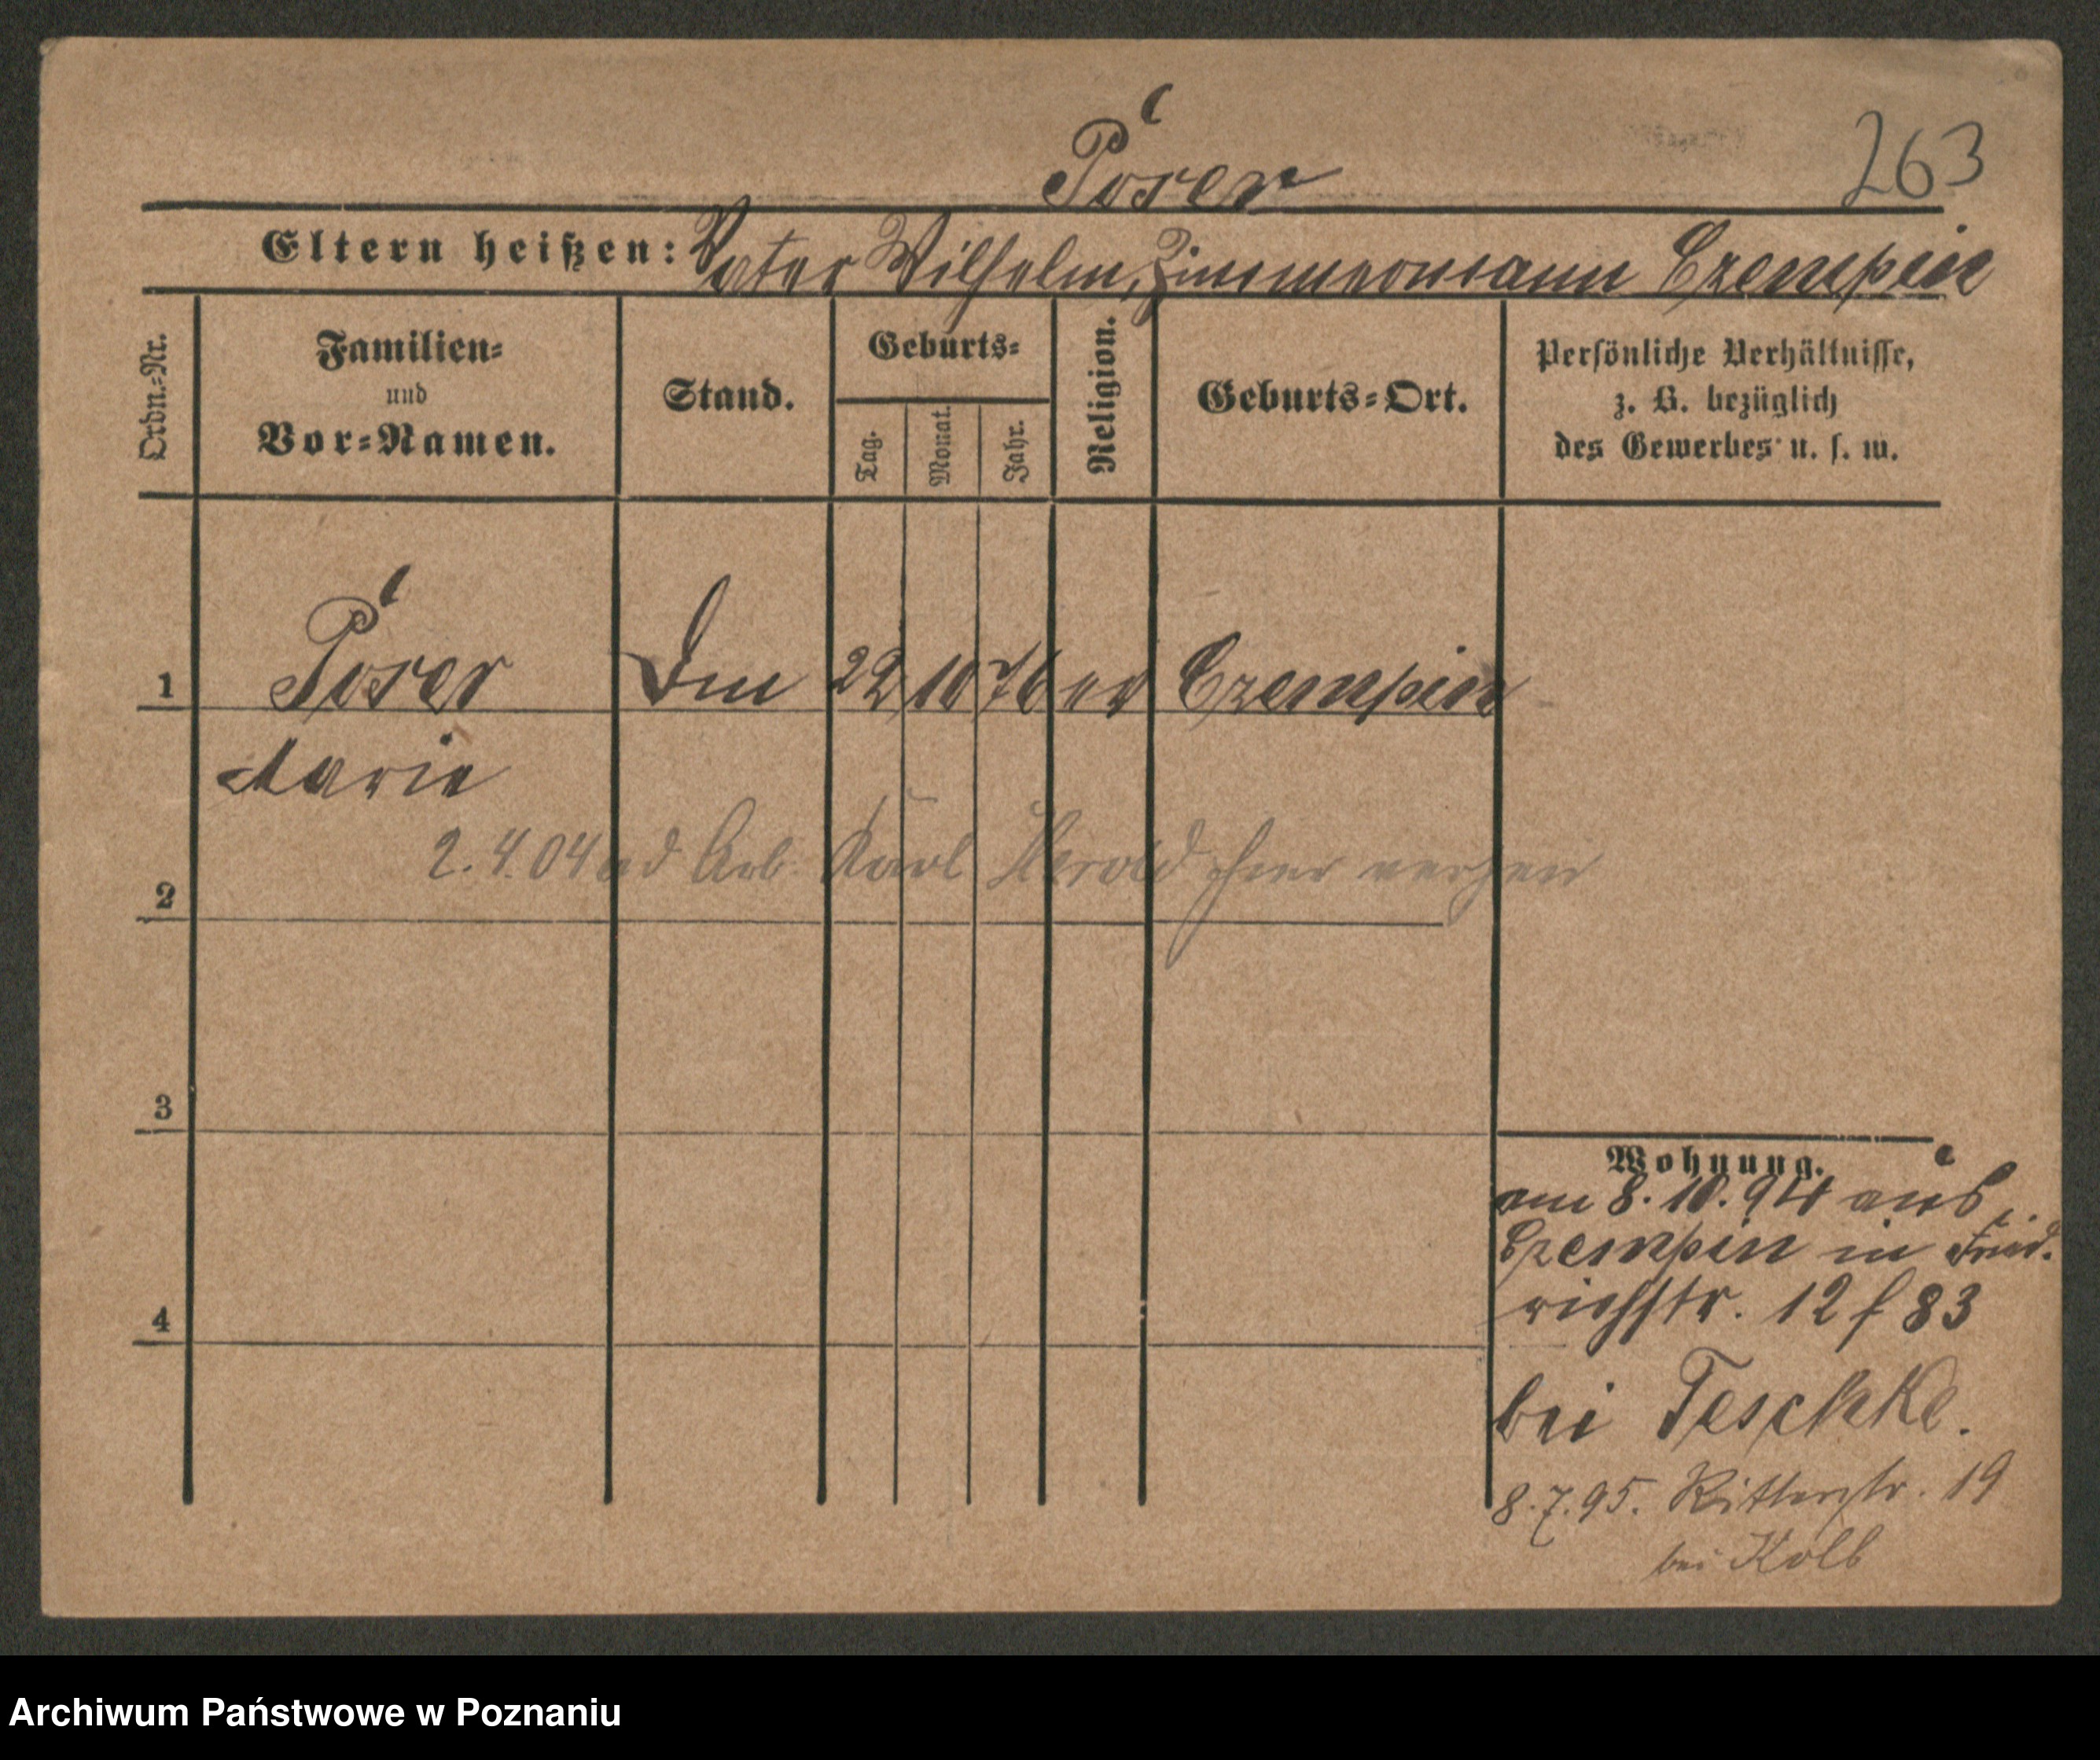 263
Poser
Eltern heißen: Vater Wilhelm, Zimmermann Czempin
Ordn.=Nr.
Familien=
und
Vor=Namen.
Stand.
Geburts=
Tag.
Monat.
Jahr.
Religion.
Geburts=Ort.
Persönliche Verhältnisse,
z. B. bezüglich
des Gewerbes u. s. w.
1 Poser 22 10 76 ev Czempin
Marie
2.4.04 Arb. Karl hier
2
3
4
Wohnung.
am 8.10.94 aus
Czempin in Fried.
richstr. 12 f 83
bei Teschke.
8.7.95. Ritterstr. 19
bei Kolb
Archiwum Państwowe w Poznaniu